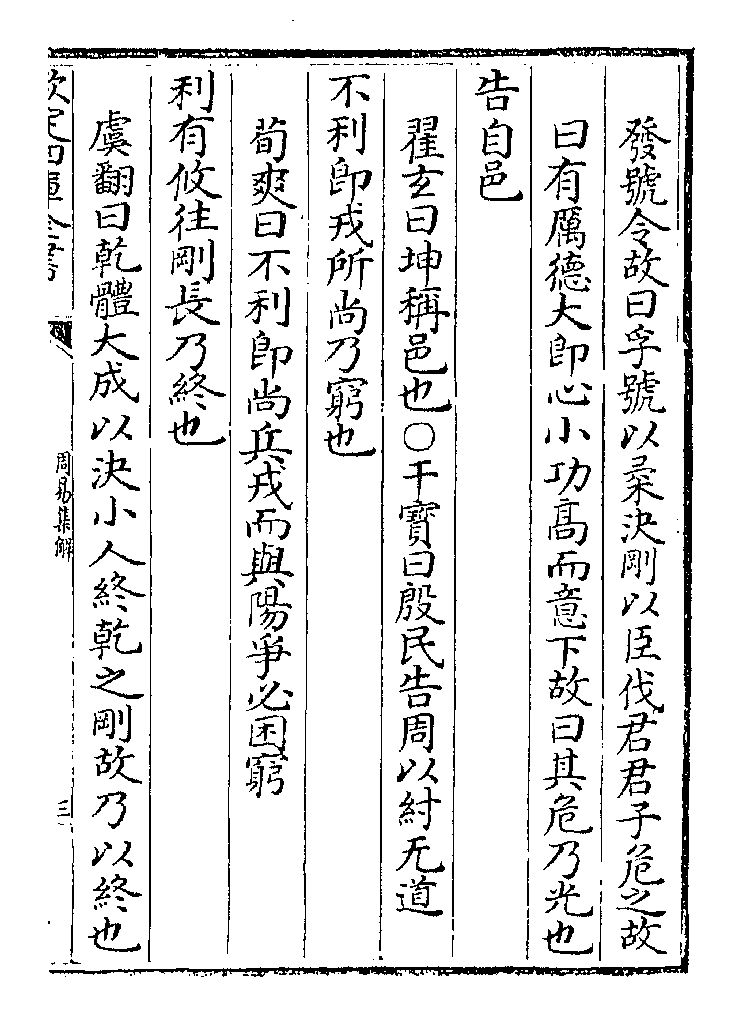 發號令故曰孚號以柔決剛以臣伐君君子危之故
曰有厲德大即心小功髙而意下故曰其危乃光也
告自邑
翟玄曰坤稱邑也○干寶曰殷民告周以紂无道
不利即戎所尚乃窮也
荀爽曰不利即尚兵戎而與陽爭必困窮
利有攸往剛長乃終也
虞翻曰乾體大成以決小人終乾之剛故乃以終也
欽定四庫全書
周易集解
三